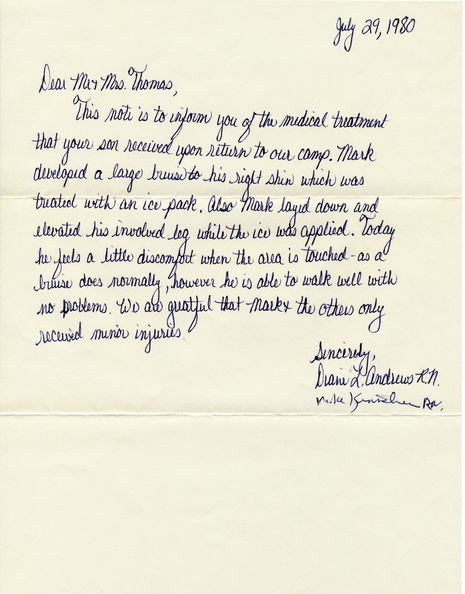 July 29, 1980
Dear Mr + Mrs. Thomas,
This note is to inform you of the medical treatment
that your son received upon return to our camp. Mark
developed a large bruise to his right shin which was
treated with an ice pack. Also Mark layed down and
elevated his involved leg while the ice was applied. Today
he feels a little discomfort when the area is touched - as a
bruise does normally, however he is able to walk well with
no problems. We are greatful that Mark + the others only
received minor injuries.
Sincerely,
Diane L. Andrews R.N.
Mike RN.